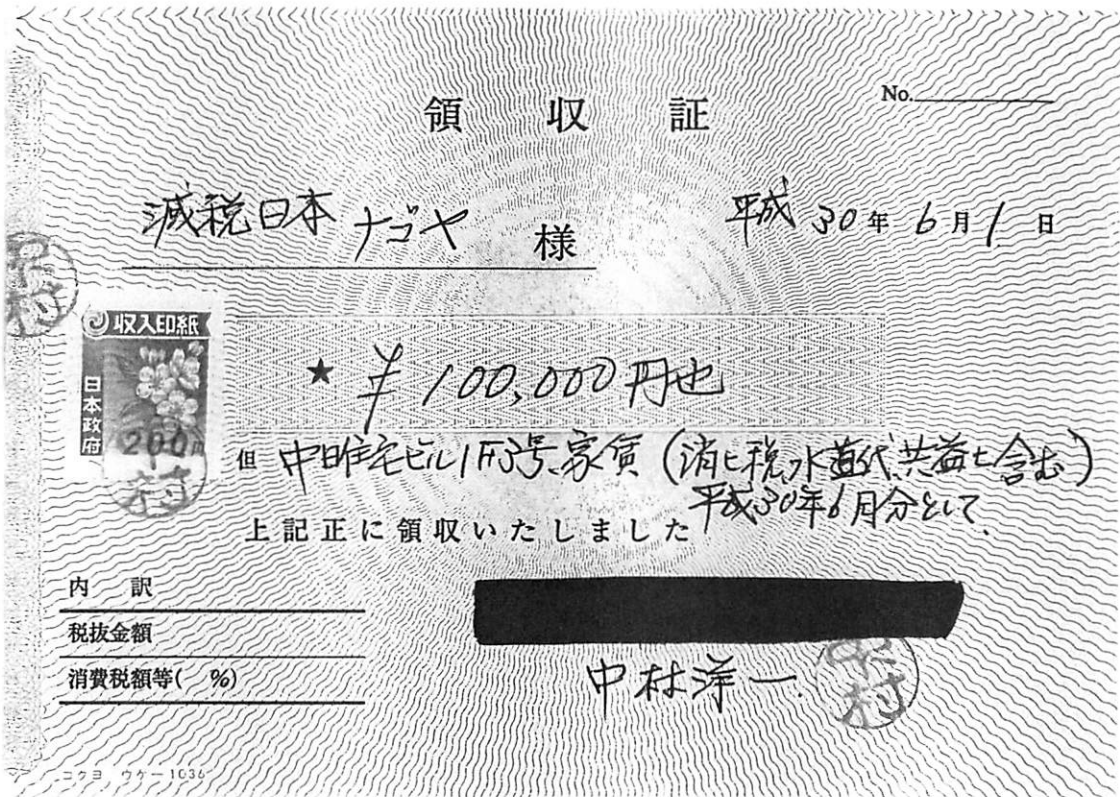 No.
領収証
減税日本ナゴヤ 様
平成30年6月1日
収入印紙
日本政府
200円
★ ¥100,000円也
但 中日住宅ビル1F3号家賃(消ヒ税水道代共益ヒ含む)
平成30年6月分として、
上記正に領収いたしました
内訳
税抜金額
消費税額等( %)
中村洋一
コクヨ ウケ-1036